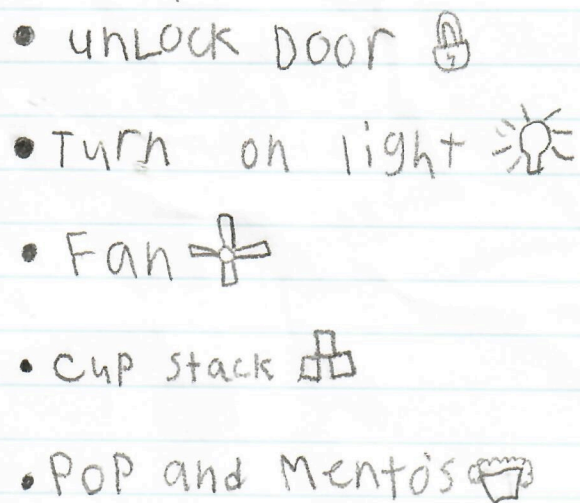 • unLock Door
• Turn on light
• Fan
• Cup stack
• Pop and Mento's